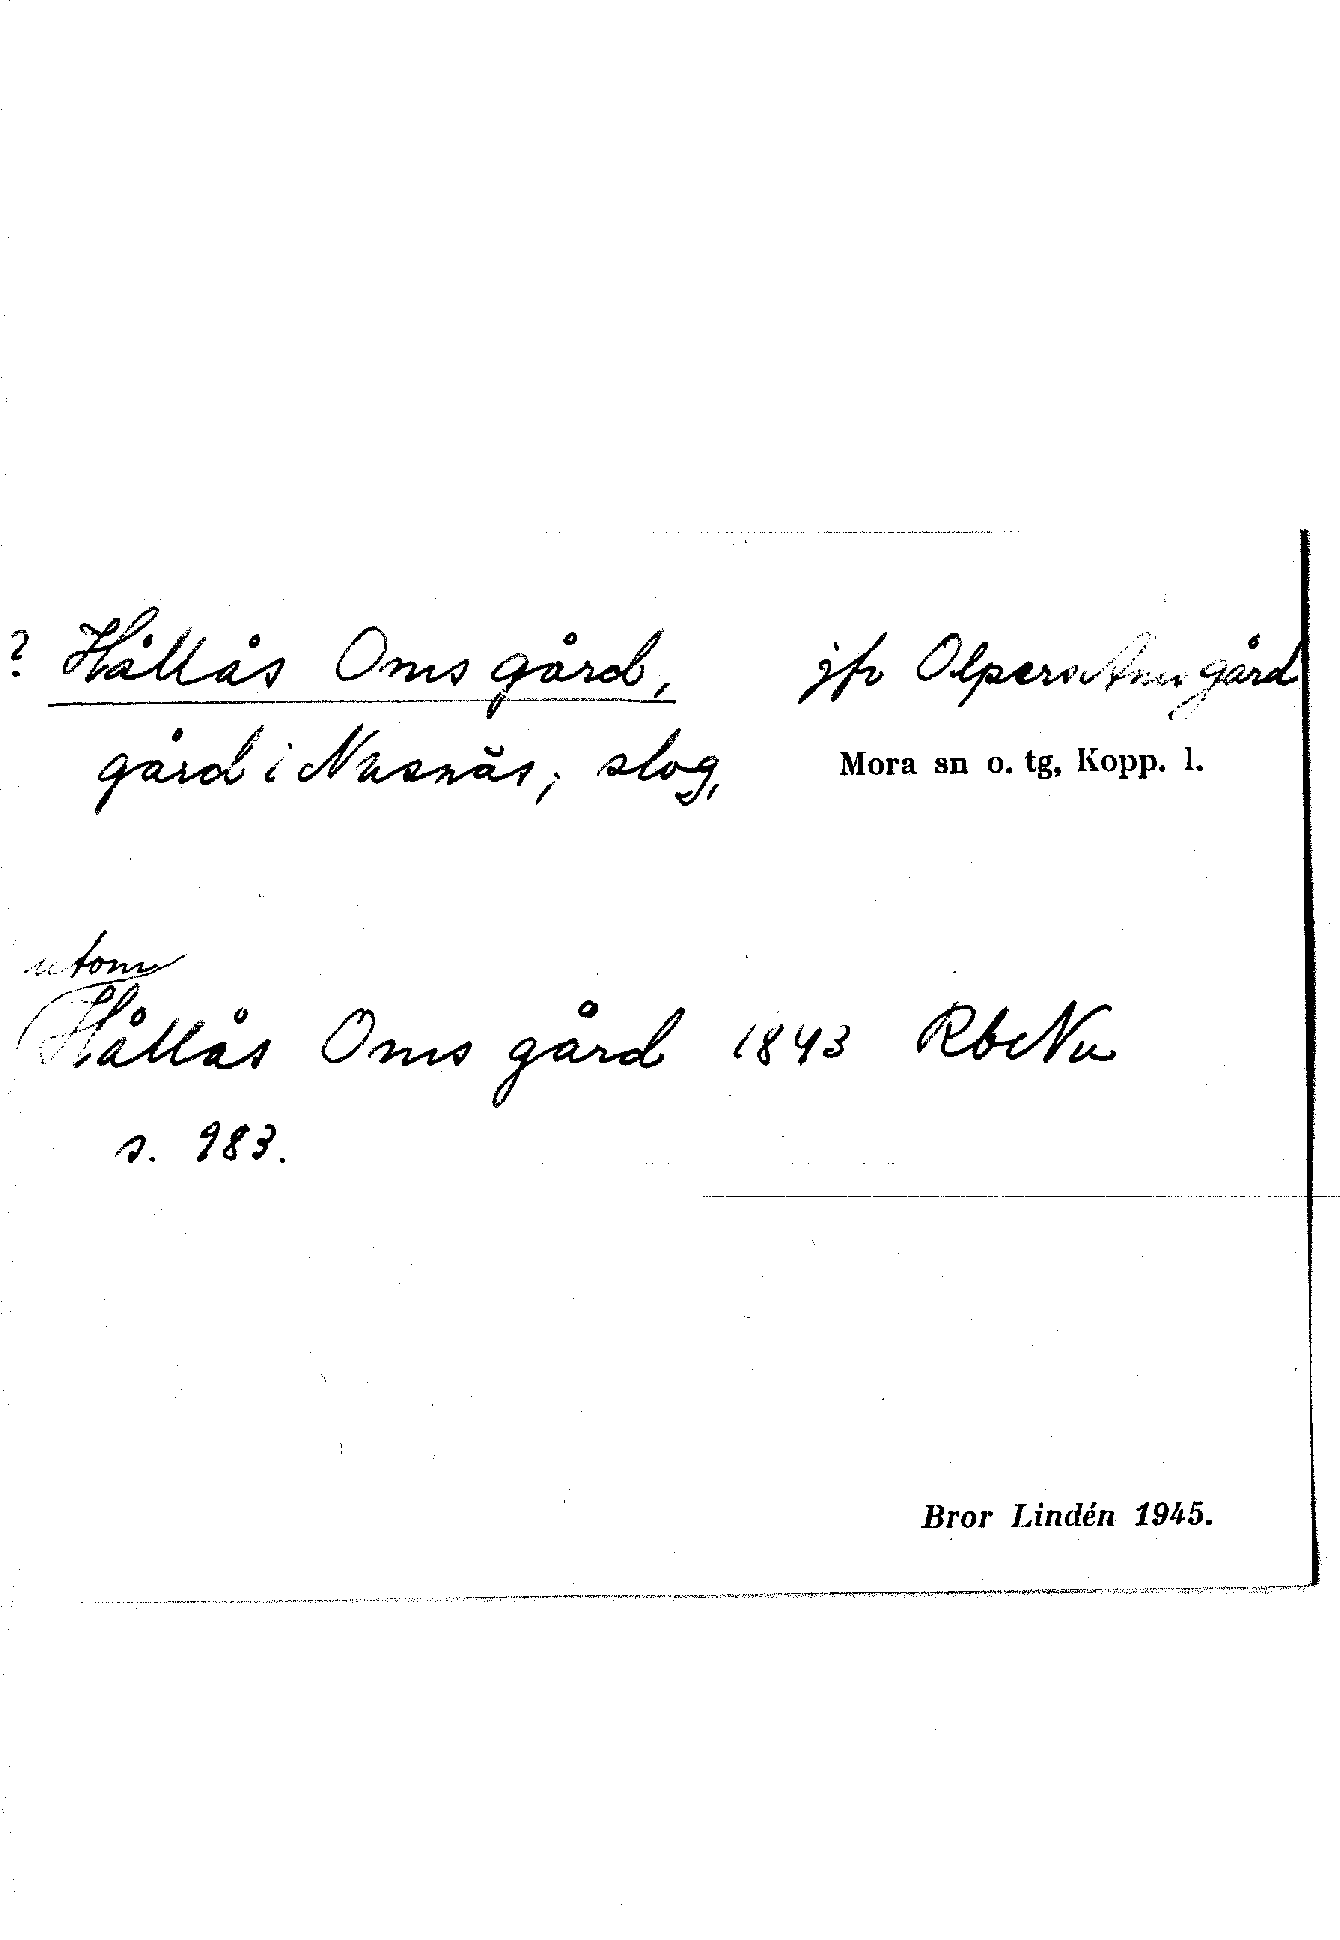 ? Hållås Oms gård, jfr Olpers Oms gård
gård i Nusnäs, slog, Mora sn o. tg, Kopp. l.
utom
Hållås Oms gård 1843 RbNu
s. 983.
Bror Lindén 1945.